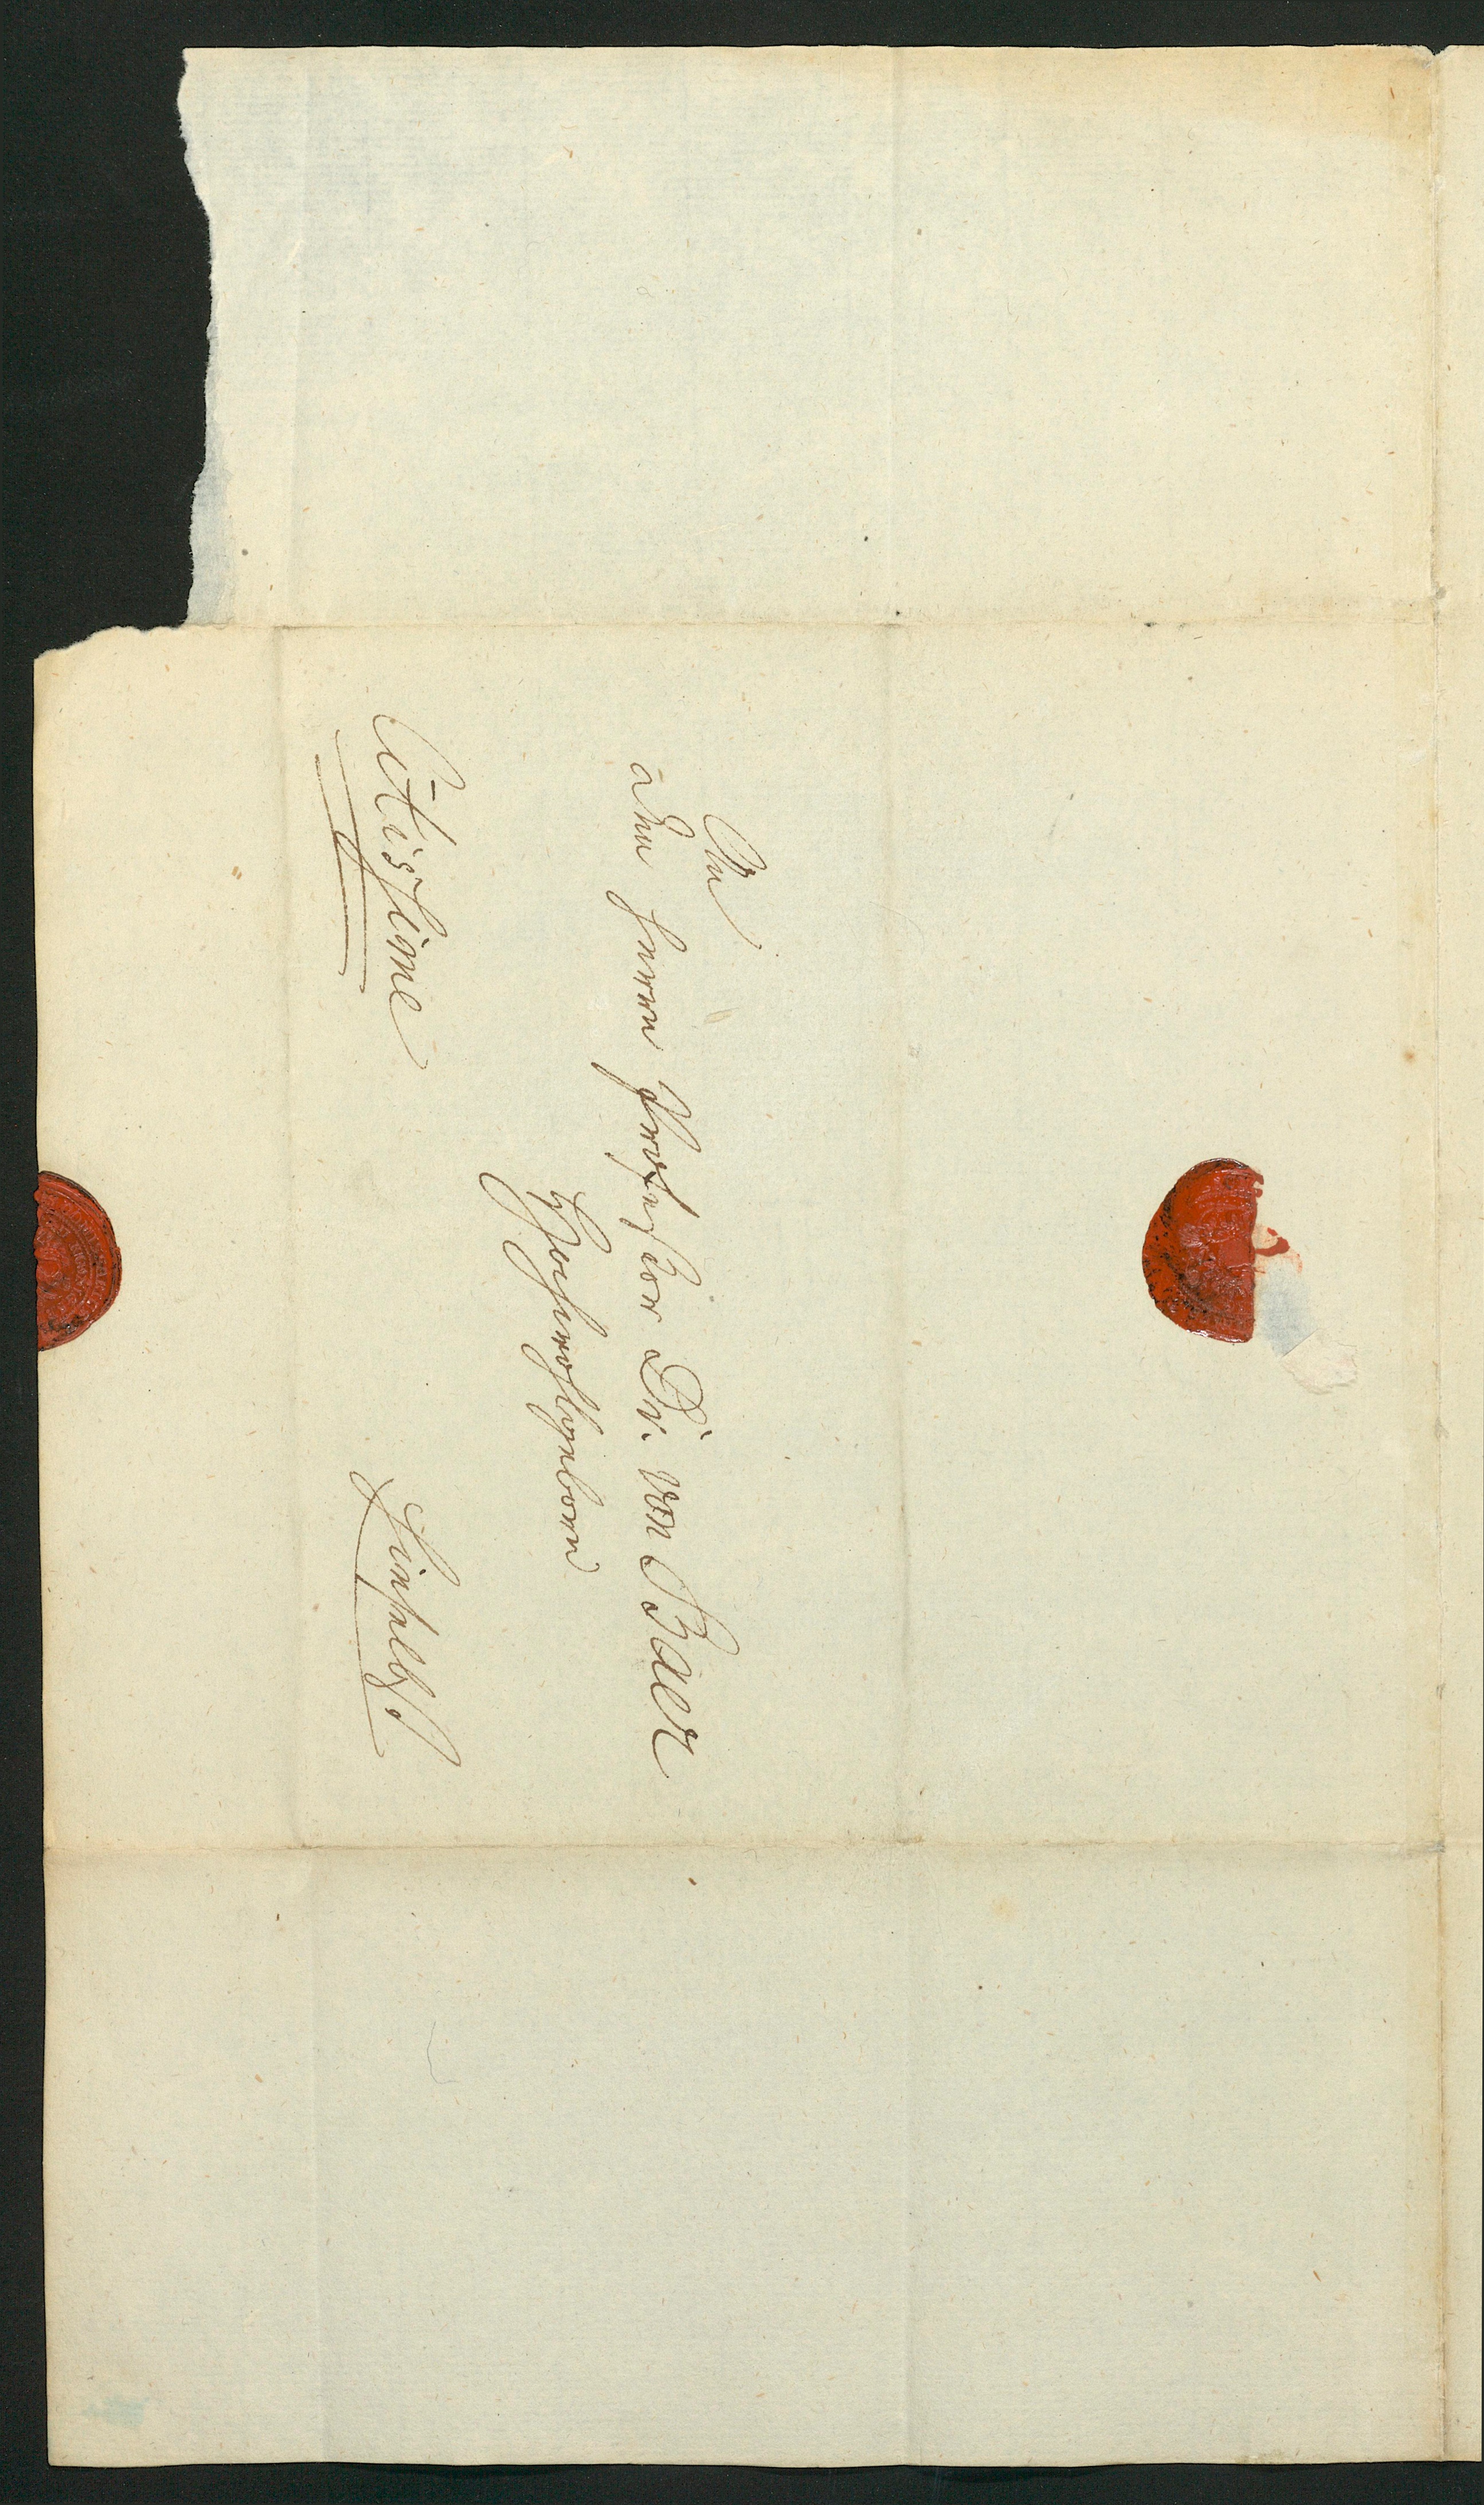 An
den Herrn Professor Dr. von Baer
Hochwohlgeborn
Citissime
Hieselbst